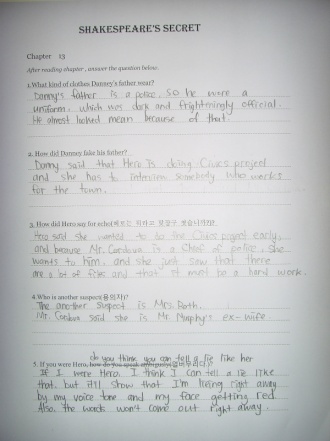 SHAKESPEARE'S SECRET
Chapter 13
After reading chapter , answer the question below.
1.What kind of clothes Danney's father wear?
Danny's father is a police. So he wore a
uniform, which was dark and frightningly official.
He almost looked mean because of that.
2. How did Danney fake his father?
Danny said that Hero is doing Civics project
and she has to interview somebody who works
for the town.
3. How did Hero say for echo(
Hero said she wanted to do the Civics project early,
and because Mr. Cordova is a Chief of police, she
wants to him. and she just saw that there
are a lot of files and that it must be a hard work.
4.Who is another suspect(용의자)?
The another suspect is Mrs. Roth.
Mr. Cordova said she is Mr. Murphy's ex-wife.
do you think you can tell a lie like her
5. If you were Hero, how do you speak
If I were Hero, I think I can tell a lie like
that. but it'll show that I'm lying right away
by my voice tone and my face getting red.
Also, the words won't come out right away.